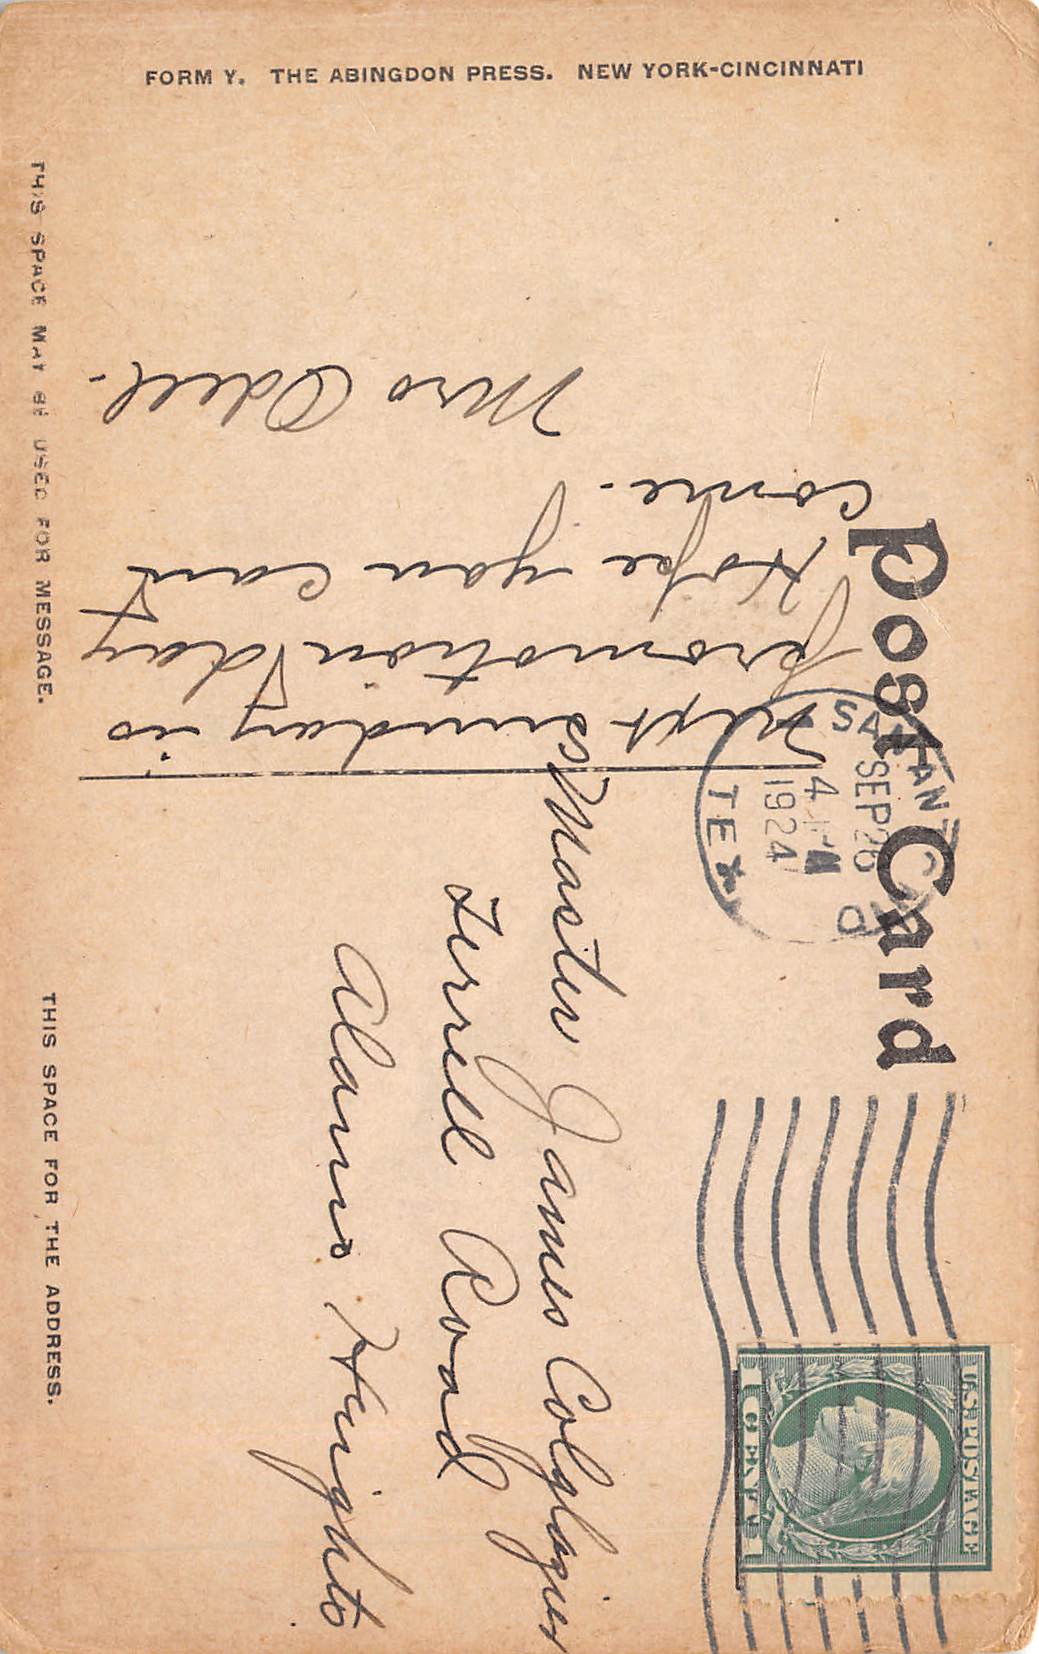 FORM Y. THE ABINGDON PRESS. NEW YORK-CINCINNATI
Post Card
THIS SPACE MAY BE USED FOR MESSAGE.
THIS SPACE FOR THE ADDRESS.
SAN ANTONIO
SEP 26
4 PM
1924
TEX
U.S. POSTAGE
1 CENT 1
Next sunday is
promotion day
Hope you can
come.
Mrs Odell.
Master James Colglazier
Terrell Road
Alamo Heights